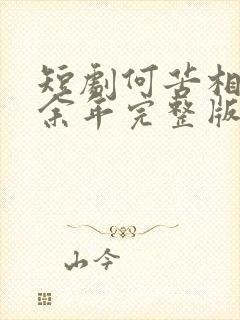 短剧何苦相
余年完整版
山今